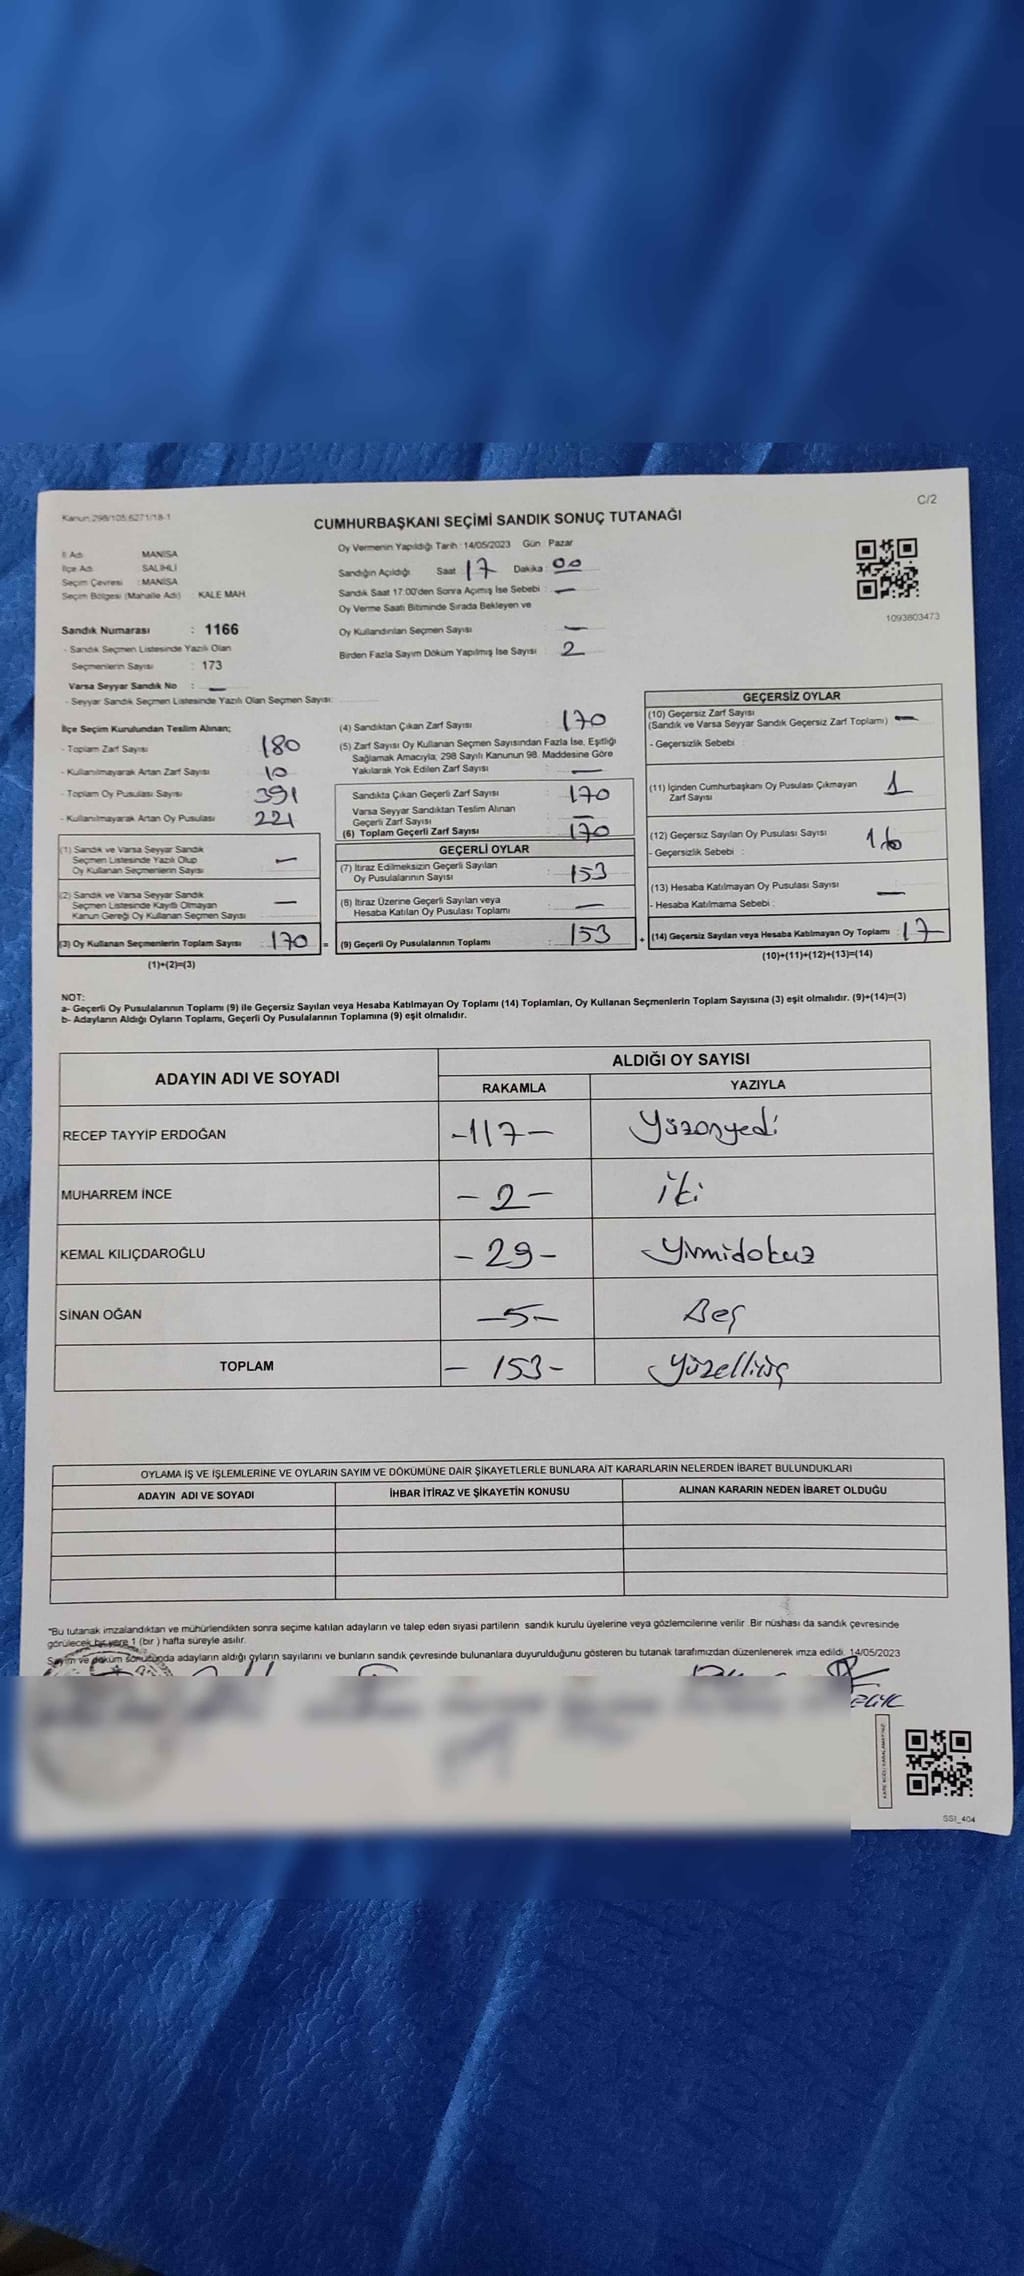 Kanun:298/105,6271/18-1
C/2
CUMHURBAŞKANI SEÇİMİ SANDIK SONUÇ TUTANAĞI
İl Adı MANİSA
İlçe Adı SALİHLİ
Seçim Çevresi : MANİSA
Seçim Bölgesi (Mahalle Adı) : KALE MAH
Sandık Numarası : 1166
- Sandık Seçmen Listesinde Yazılı Olan
Seçmenlerin Sayısı : 173
Varsa Seyyar Sandık No : —
- Seyyar Sandık Seçmen Listesinde Yazılı Olan Seçmen Sayısı:
Oy Vermenin Yapıldığı Tarih : 14/05/2023 Gün : Pazar
Sandığın Açıldığı Saat 17 Dakika : 00
Sandık Saat 17:00'den Sonra Açımış İse Sebebi : —
Oy Verme Saati Bitiminde Sırada Bekleyen ve
Oy Kullandırılan Seçmen Sayısı : —
Birden Fazla Sayım Döküm Yapılmış İse Sayısı : 2
1093803473
İlçe Seçim Kurulundan Teslim Alınan;
- Toplam Zarf Sayısı : 180
- Kullanılmayarak Artan Zarf Sayısı : 10
- Toplam Oy Pusulası Sayısı : 391
- Kullanılmayarak Artan Oy Pusulası : 221
(1) Sandık ve Varsa Seyyar Sandık
Seçmen Listesinde Yazılı Olup
Oy Kullanan Seçmenlerin Sayısı : —
(2) Sandık ve Varsa Seyyar Sandık
Seçmen Listesinde Kayıtlı Olmayan
Kanun Gereği Oy Kullanan Seçmen Sayısı : —
(3) Oy Kullanan Seçmenlerin Toplam Sayısı : 170 =
(1)+(2)=(3)
(4) Sandıktan Çıkan Zarf Sayısı : 170
(5) Zarf Sayısı Oy Kullanan Seçmen Sayısından Fazla İse, Eşitliği
Sağlamak Amacıyla, 298 Sayılı Kanunun 98. Maddesine Göre
Yakılarak Yok Edilen Zarf Sayısı : —
Sandıkta Çıkan Geçerli Zarf Sayısı : 170
Varsa Seyyar Sandıktan Teslim Alınan
Geçerli Zarf Sayısı : —
(6) Toplam Geçerli Zarf Sayısı : 170
GEÇERLİ OYLAR
(7) İtiraz Edilmeksizin Geçerli Sayılan
Oy Pusulalarının Sayısı : 153
(8) İtiraz Üzerine Geçerli Sayılan veya
Hesaba Katılan Oy Pusulası Toplamı : —
(9) Geçerli Oy Pusulalarının Toplamı : 153 +
GEÇERSİZ OYLAR
(10) Geçersiz Zarf Sayısı
(Sandık ve Varsa Seyyar Sandık Geçersiz Zarf Toplamı) : —
- Geçersizlik Sebebi :
(11) İçinden Cumhurbaşkanı Oy Pusulası Çıkmayan
Zarf Sayısı : 1
(12) Geçersiz Sayılan Oy Pusulası Sayısı : 16
- Geçersizlik Sebebi :
(13) Hesaba Katılmayan Oy Pusulası Sayısı : —
- Hesaba Katılmama Sebebi :
(14) Geçersiz Sayılan veya Hesaba Katılmayan Oy Toplamı : 17
(10)+(11)+(12)+(13)=(14)
NOT:
a- Geçerli Oy Pusulalarının Toplamı (9) ile Geçersiz Sayılan veya Hesaba Katılmayan Oy Toplamı (14) Toplamları, Oy Kullanan Seçmenlerin Toplam Sayısına (3) eşit olmalıdır. (9)+(14)=(3)
b- Adayların Aldığı Oyların Toplamı, Geçerli Oy Pusulalarının Toplamına (9) eşit olmalıdır.
ADAYIN ADI VE SOYADI
ALDIĞI OY SAYISI
RAKAMLA YAZIYLA
RECEP TAYYİP ERDOĞAN -117- Yüzonyedi
MUHARREM İNCE -2- iki
KEMAL KILIÇDAROĞLU -29- Yirmidokuz
SİNAN OĞAN -5- Beş
TOPLAM -153- Yüzelliüç
OYLAMA İŞ VE İŞLEMLERİNE VE OYLARIN SAYIM VE DÖKÜMÜNE DAİR ŞİKAYETLERLE BUNLARA AİT KARARLARIN NELERDEN İBARET BULUNDUKLARI
ADAYIN ADI VE SOYADI İHBAR İTİRAZ VE ŞİKAYETİN KONUSU ALINAN KARARIN NEDEN İBARET OLDUĞU
"Bu tutanak imzalandıktan ve mühürlendikten sonra seçime katılan adayların ve talep eden siyasi partilerin sandık kurulu üyelerine veya gözlemcilerine verilir. Bir nüshası da sandık çevresinde
görülecek bir yere 1 (bir ) hafta süreyle asılır.
Sayım ve döküm sonucunda adayların aldığı oyların sayılarını ve bunların sandık çevresinde bulunanlara duyurulduğunu gösteren bu tutanak tarafımızdan düzenlenerek imza edildi. 14/05/2023
SSI_404